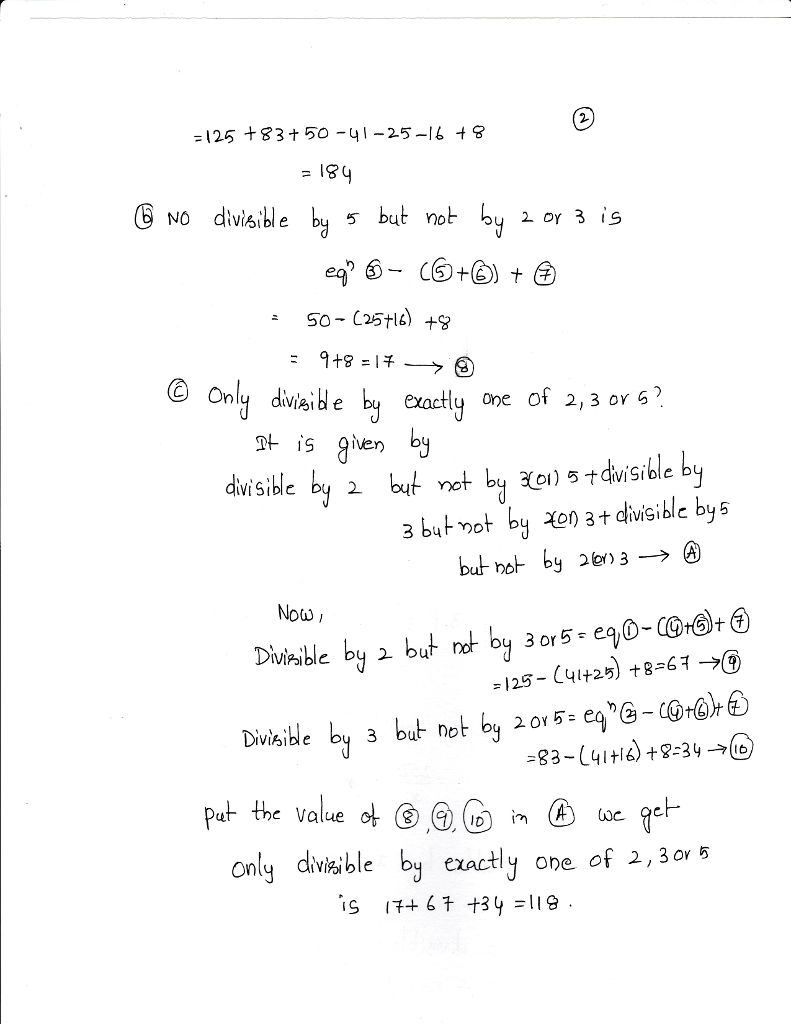 ②
=125 +83+50 -41-25-16 +8
= 184
ⓑ NO divisible by 5 but not by 2 or 3 is
eqⁿ ③ - (⑤+⑥) + ⑦
= 50 - (25+16) +8
= 9+8 =17 → ⑧
ⓒ Only divisible by exactly one of 2, 3 or 5?
It is given by
divisible by 2 but not by 3(or) 5 + divisible by
3 but not by 2(or) 3 + divisible by 5
but not by 2(or) 3 → Ⓐ
Now,
Divisible by 2 but not by 3 or 5 = eq, ① - (④+⑤) + ⑦
=125 - (41+25) +8=67 → ⑨
Divisible by 3 but not by 2 or 5 = eqⁿ ② - (④+⑥)+ ⑦
=83-(41+16)+8=34 → ⑩
put the value of ⑧, ⑨, ⑩ in Ⓐ we get
only divisible by exactly one of 2, 3 or 5
is 17+ 67 +34 =118.